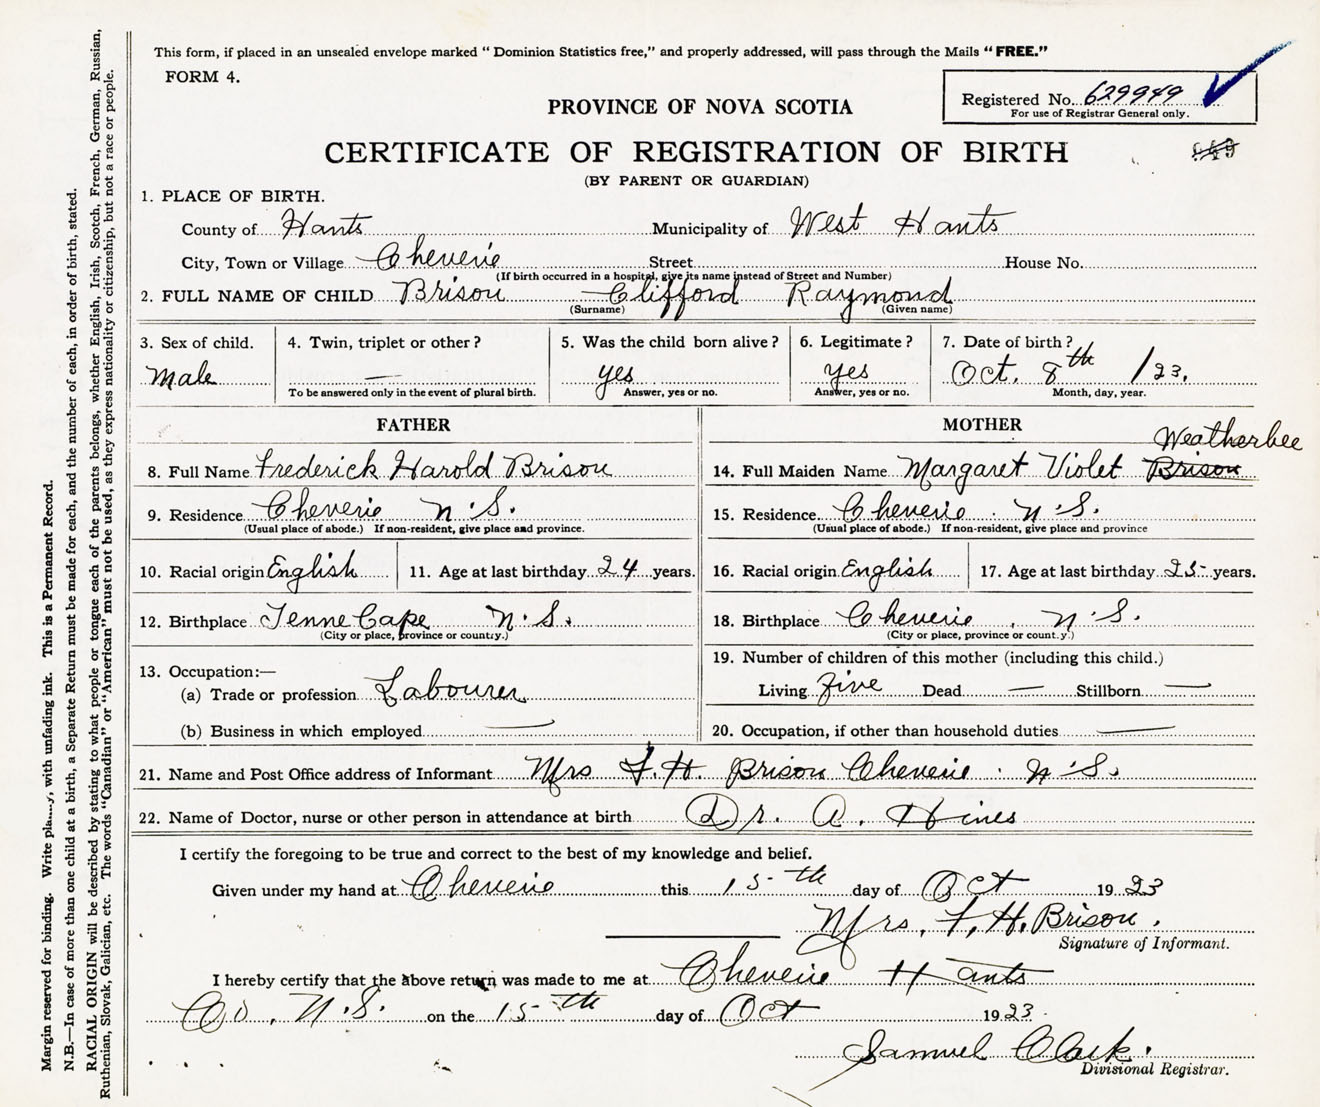 This form, if placed in an unsealed envelope marked "Dominion Statistics free," and properly addressed, will pass through the Mails "FREE."
FORM 4.
Registered No. 629949
For use of Registrar General only.
PROVINCE OF NOVA SCOTIA
CERTIFICATE OF REGISTRATION OF BIRTH
(BY PARENT OR GUARDIAN)
1. PLACE OF BIRTH.
County of Hants Municipality of West Hants
City, Town or Village Cheverie Street House No.
(If birth occurred in a hospital, give its name instead of Street and Number)
2. FULL NAME OF CHILD Brison Clifford Raymond
(Surname) (Given name)
3. Sex of child. 4. Twin, triplet or other? 5. Was the child born alive? 6. Legitimate? 7. Date of birth?
Male — yes yes Oct. 8th /23.
To be answered only in the event of plural birth. Answer, yes or no. Answer, yes or no. Month, day, year.
FATHER MOTHER
Weatherbee
8. Full Name Frederick Harold Brison 14. Full Maiden Name Margaret Violet Brison
9. Residence Cheverie N.S. 15. Residence Cheverie. N.S.
(Usual place of abode.) If non-resident, give place and province. (Usual place of abode.) If non-resident, give place and province
10. Racial origin English 11. Age at last birthday 24 years. 16. Racial origin English 17. Age at last birthday 25 years.
12. Birthplace Tenne Cape N.S. 18. Birthplace Cheverie, N.S.
(City or place, province or county.) (City or place, province or county.)
13. Occupation:— 19. Number of children of this mother (including this child.)
(a) Trade or profession Labourer Living five Dead — Stillborn —
(b) Business in which employed — 20. Occupation, if other than household duties —
21. Name and Post Office address of Informant Mrs F. H. Brison Cheverie. N.S.
22. Name of Doctor, nurse or other person in attendance at birth Dr. A. Hines
I certify the foregoing to be true and correct to the best of my knowledge and belief.
Given under my hand at Cheverie this 15th day of Oct 1923
Mrs. F. H. Brison.
Signature of Informant.
I hereby certify that the above return was made to me at Cheverie Hants
Co. N.S. on the 15th day of Oct 1923
Samuel Clark.
Divisional Registrar.
Margin reserved for binding. Write plainly, with unfading ink. This is a Permanent Record.
N.B.—In case of more than one child at a birth, a Separate Return must be made for each, and the number of each, in order of birth, stated.
RACIAL ORIGIN will be described by stating to what people or tongue each of the parents belongs, whether English, Irish, Scotch, French, German, Russian,
Ruthenian, Slovak, Galician, etc. The words "Canadian" or "American" must not be used, as they express nationality or citizenship, but not a race or people.